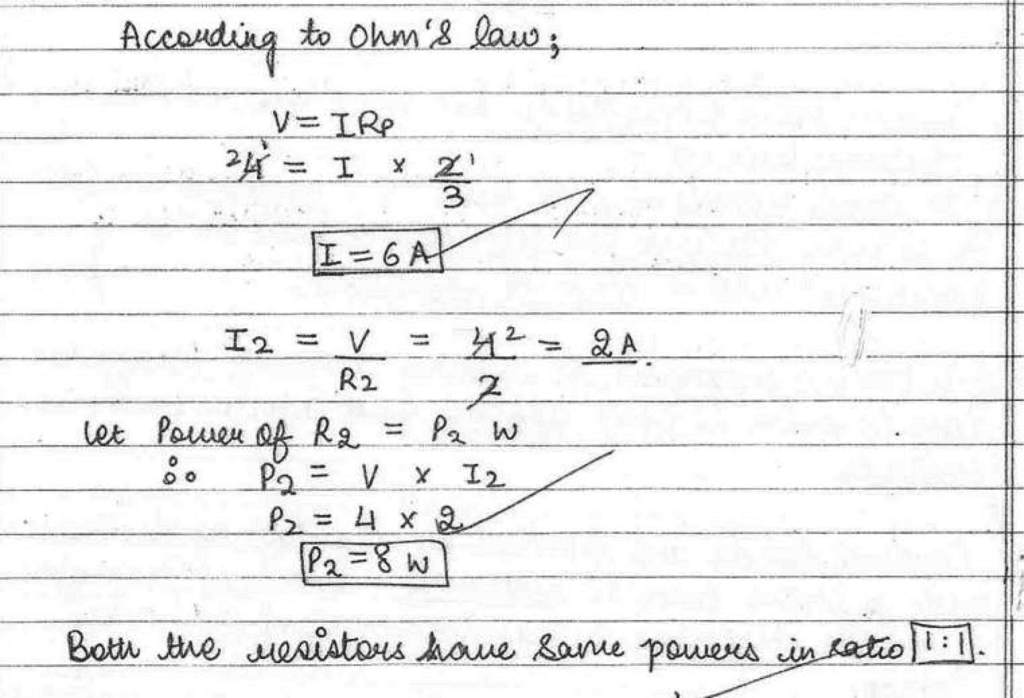 According to Ohm's law;
V = IRp
²4̶ ¹ = I × 2̶ ¹/3
I = 6 A
I2 = V/R2 = 4̶ ²/2̶ = 2A.
let Power of R2 = P2 W
∴ P2 = V × I2
P2 = 4 × 2
P2 = 8 W
Both the resistors have same powers in ratio 1:1.